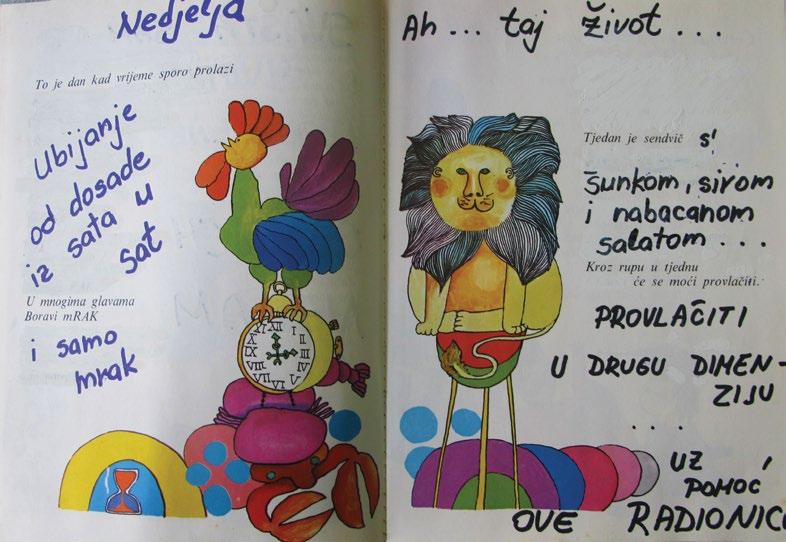 Nedjelja
To je dan kad vrijeme sporo prolazi
Ubijanje
od dosade
iz sata u
sat
U mnogima glavama
Boravi mRAK
i samo
mrak
XII
I
II
III
IX
Ah... taj život...
Tjedan je sendvič s'
šunkom, sirom
i nabacanom
salatom...
Kroz rupu u tjednu
će se moći provlačiti.
PROVLAČITI
U DRUGU DIMEN-
ZIJU
....
UZ
POMOĆ
OVE RADIONICE